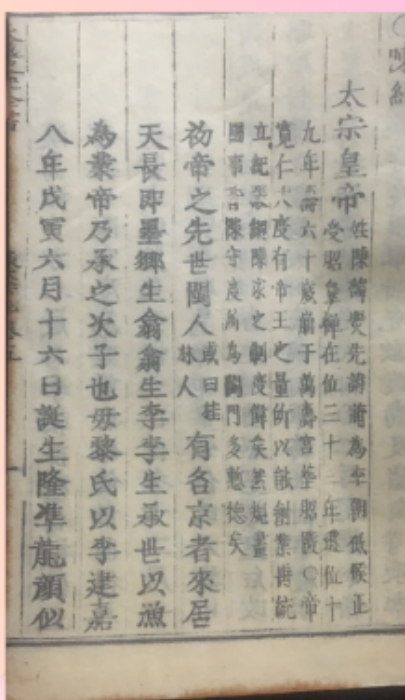 ○陳紀
太宗皇帝
姓陳諱煚先諱蒲為李朝祗候正
受昭皇禪在位三十二年遜位十
九年壽六十歲崩于萬壽宮葬昭陵○帝
寬仁大度有帝王之量所以能創業垂統
立紀張綱陳家之制度偉矣然規畫
國事皆陳守度為閨門多慙德矣
初帝之先世閩人或曰桂林人有名京者來居
天長即墨鄉生翕翕生李李生承世以漁
為業帝乃承之次子也母黎氏以李建嘉
八年戊寅六月十六日誕生隆準龍顏似